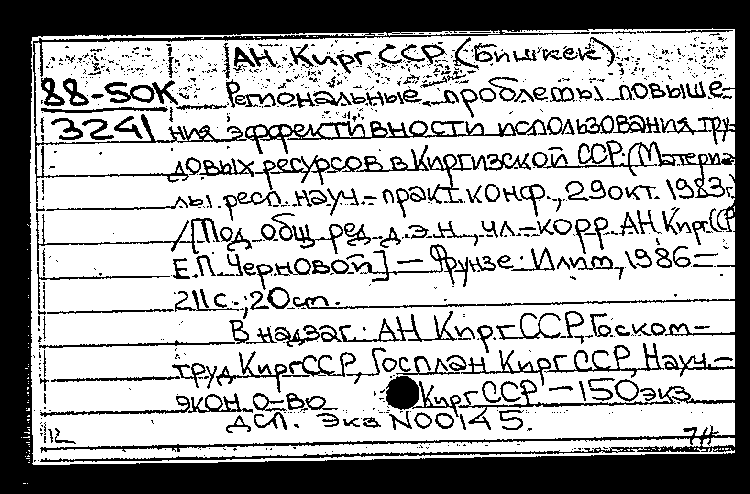 АН КиргССР (Бишкек)
88-50К Региональные проблемы повыше-
3241 ния эффективности использования тру-
довых ресурсов в Киргизской ССР. (Материа-
лы респ. науч.- практ. конф., 29 окт. 1983)
/[Под общ. ред. д.э.н., чл.-корр. АН КиргССР
Е.П. Черновой] — Фрунзе: Илим, 1986 —
211 с.; 20 см.
В надзаг.: АН КиргССР, Госком-
труд КиргССР, Госплан КиргССР, Науч.-
экон. о-во КиргССР — 150 экз
ДСП. Экз N00145.
12